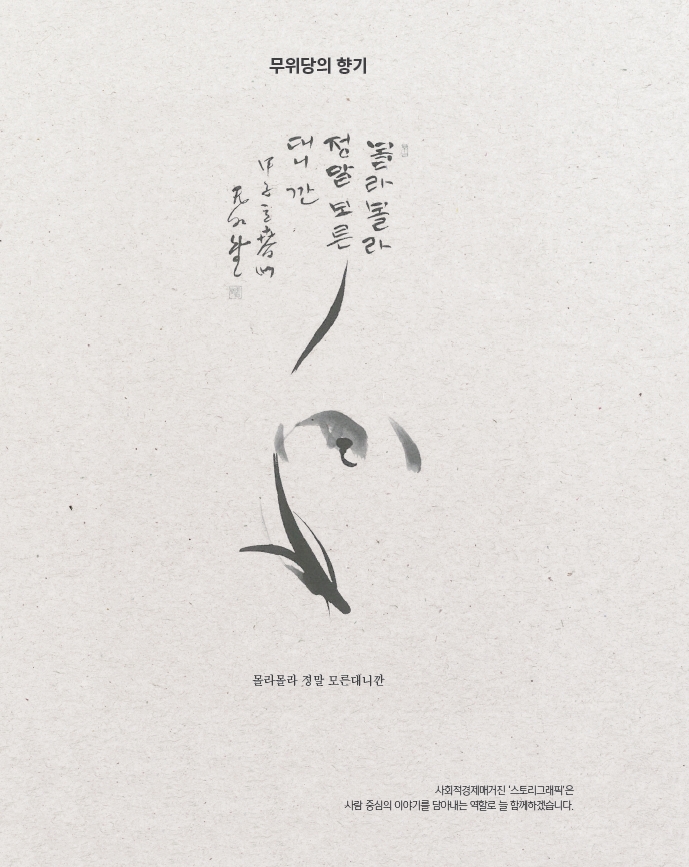 무위당의 향기
몰라몰라
정말 모른
대니깐
甲子立春
无为
몰라몰라 정말 모른대니깐
사회적경제매거진 '스토리그래픽'은
사람 중심의 이야기를 담아내는 역할로 늘 함께하겠습니다.